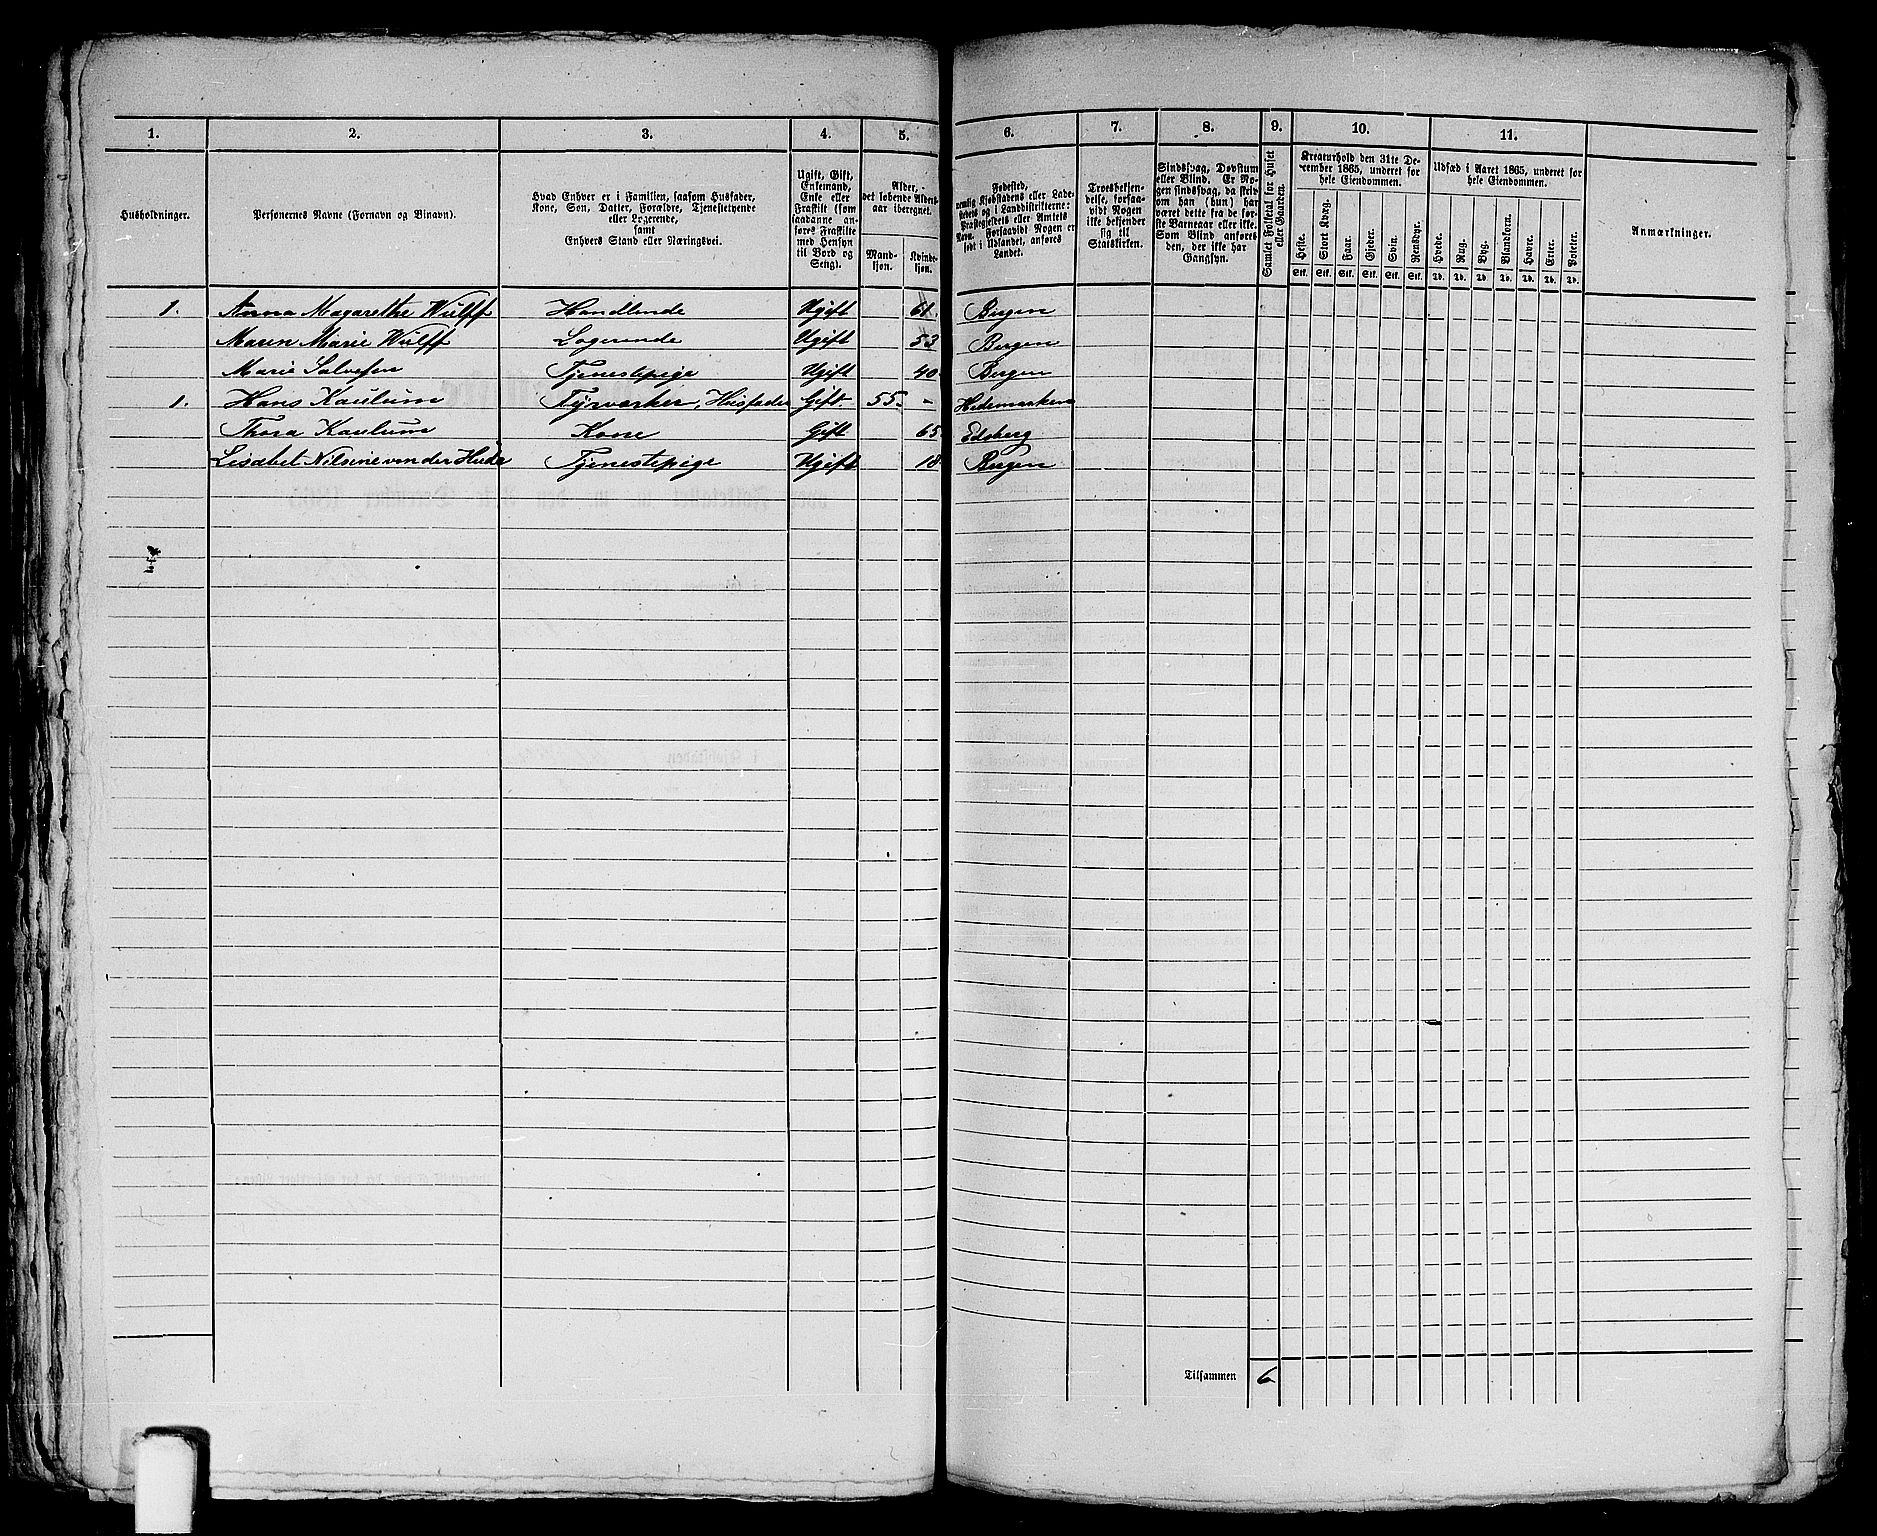 1. 2. 3. 4. 5. 6. 7. 8. 9. 10. 11.
Husholdninger.
Personernes Navne (Fornavn og Binavn).
Hvad Enhver er i Familien, saasom Husfader,
Kone, Søn, Datter, Forældre, Tjenestetyende
eller Logerende,
samt
Enhvers Stand eller Næringsvei.
Ugift, Gift,
Enkemand,
Enke eller
Fraskilt (som
saadanne an-
føres Fraskilte
med Hensyn
til Bord og
Seng).
Alder,
det løbende Alders-
aar iberegnet.
Mand-
kjøn.
Kvinde-
kjøn.
Fødested,
nemlig Kjøbstadens eller Lade-
stedets og i Landdistrikterne:
Præstegjeldets eller Amtets
Navn. Forsaavidt Nogen er
født i Udlandet, anføres
Landet.
Troesbekjen-
delse, forsaa-
vidt Nogen
ikke bekjender
sig til
Statskirken.
Sindssvag, Døvstum
eller Blind. Er No-
gen sindssvag, da skriv
om han (hun) har
været dette fra de før-
ste Barneaar eller ikke.
Som Blind anføres
den, der ikke har
Gangsyn.
Samlet Folketal for Huset
eller Gaarden.
Kreaturhold den 31te De-
cember 1865, underet for
hele Eiendommen.
Heste. Stort Kvæg. Faar. Gjeder. Svin. Rensdyr.
Stk. Stk. Stk. Stk. Stk. Stk.
Udsæd i Aaret 1865, underet for
hele Eiendommen.
Hvede. Rug. Byg. Blandkorn. Havre. Erter. Poteter.
Td. Td. Td. Td. Td. Td. Td.
Anmærkninger.
1. Anna Magarethe Wulff Handlende Ugift 61. Bergen
Maren Marie Wulff Logerende Ugift 53 Bergen
Marie Salvesen Tjenestepige Ugift 40 Bergen
1. Hans Kaulum Fyrvarker, Husfader Gift. 55. - Hedemarken
Thora Kaulum Kone Gift 65. Edsberg
Lisabet Nilsine von der Hude Tjenestepige Ugift 18 Bergen
Tilsammen 6